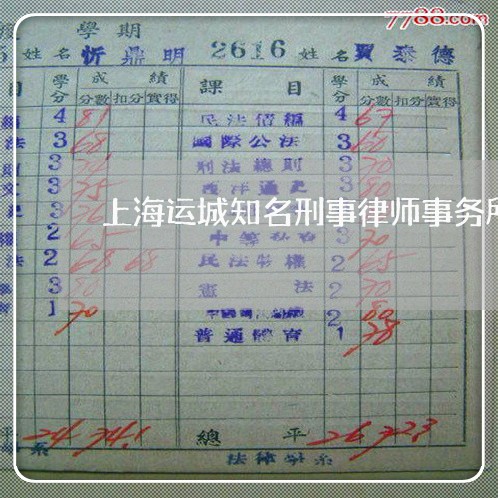 7788.com
度 學 期
姓 名 忻 鼎 明 2616 姓 名 賈 泰 德
目 學分 成 績 課 目 學分 成 績
分數 扣分 實得 分數 扣分 實得
4 81 民法債編 4 67
法 3 68 國際公法 3 60
3 刑法總則 3 70
文 3 75 西洋通史 3 80
3 76
上海运城知名刑事律师事务所
2 65 3 70
法 2 68 68 民法物權 2 65
3 80 憲 法 2 70
育 1 70 2 80
普通體育 1 78
平 24 74.1 總 平 26 72.3
系 法律學系